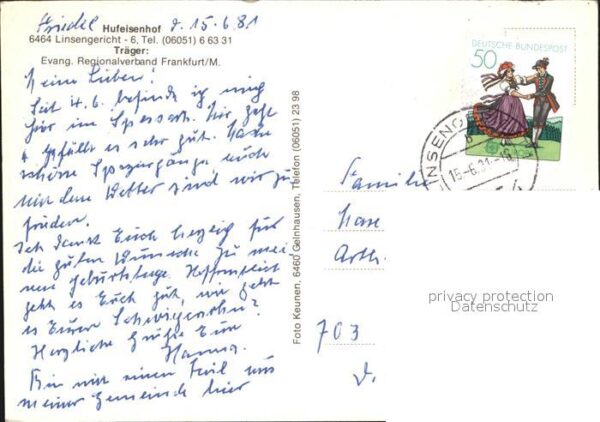 d. 15.6.81
Hufeisenhof
6464 Linsengericht - 6, Tel. (06051) 6 63 31
Träger:
Evang. Regionalverband Frankfurt/M.
Meine Lieben!
Seit 4.6. befinde ich mich
hier im Spessart. Mir geht
u gefällt es sehr gut. Mache
schöne Spaziergänge auch
mit dem Wetter sind wir zu
frieden.
Ich danke Euch herzlich für
die guten Wünsche zu mei
nem Geburtstage. Hoffentlich
geht es Euch gut, wie geht
es Eurer Schwiegersohn?
Herzliche Grüße Eure
Hanna.
Bin mit einem Teil aus
meiner Gemeinde hier
Foto Keunen, 6460 Gelnhausen, Telefon (06051) 23 98
DEUTSCHE BUNDESPOST
50
15.-6.81.-16
Familie
703
privacy protection
Datenschutz